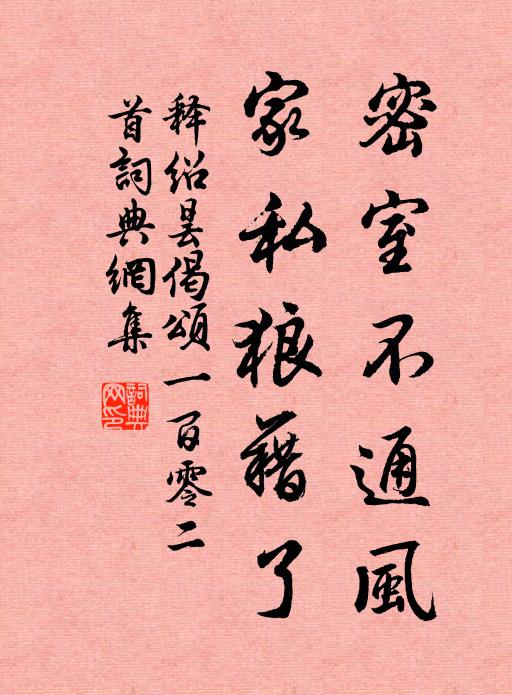 密室不通風
家私狼藉了
释绍昙偈頌一百零二
首詞典網集
詞典网印